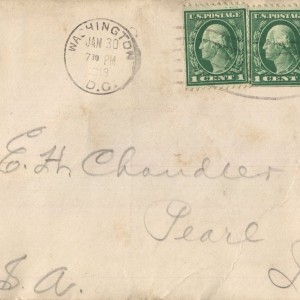 WASHINGTON
JAN 30
7 30 PM
D.C.
U.S. POSTAGE
1 CENT 1
U.S. POSTAGE
1 CENT 1
E. H. Chandler
Pearl
S. A.